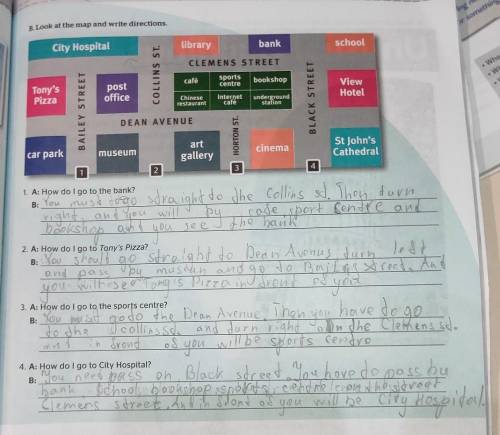 B. Look at the map and write directions.
City Hospital
library
bank
school
COLLINS ST.
CLEMENS STREET
Tony's Pizza
BAILEY STREET
post office
café
sports centre
bookshop
BLACK STREET
View Hotel
Chinese restaurant
Internet café
underground station
DEAN AVENUE
car park
museum
art gallery
HORTON ST.
cinema
St John's Cathedral
1
2
3
4
1. A: How do I go to the bank?
B: You must go straight to the Collins st. Then turn
right, and you will by cafe, sport centre and
bookshop and you see the bank
2. A: How do I go to Tony's Pizza?
B: You should go straight to Dean Avenue, turn left
and pass by and go to street. And
you will see Tong's Pizza in front of you
3. A: How do I go to the sports centre?
B: You must go to the Dean Avenue. Then you have to go
to the and turn right on the Clemens st.
and in front of you will be sports centre
4. A: How do I go to City Hospital?
B: You need pass on Black street. You have to pass by
bank school, bookshop, sports centre on the street
Clemens street. And in front of you will be City Hospital.